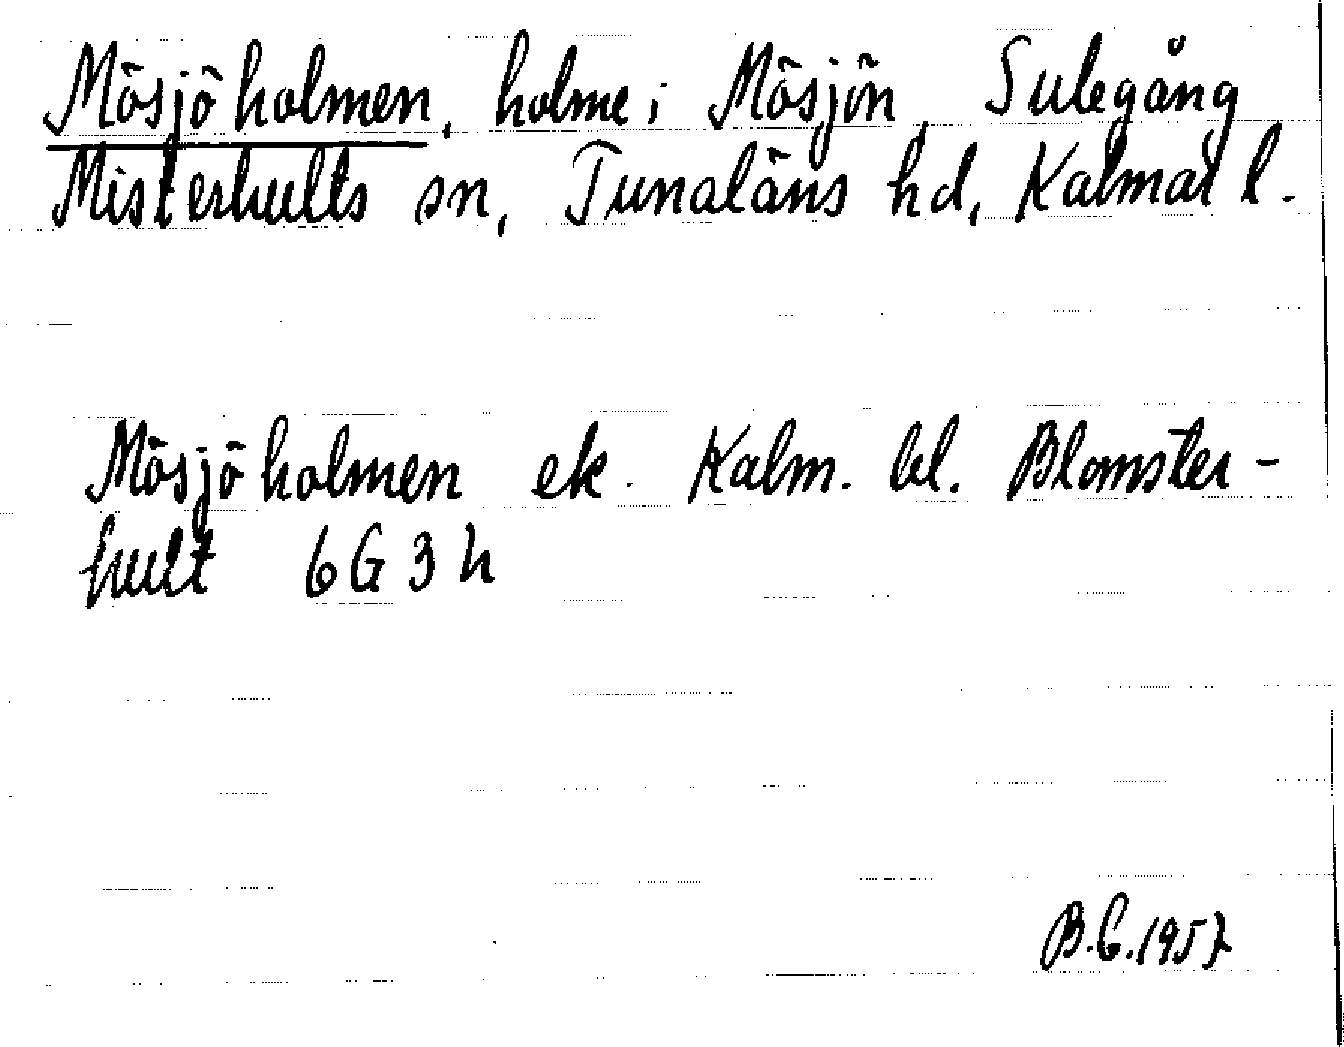 Mösjöholmen, holme i Mösjön, Sulegång
Misterhults sn, Tunaläns hd, Kalmar l.
Mösjöholmen ek. Kalm. bl. Blomster-
hult 6G3h
B.G.1957